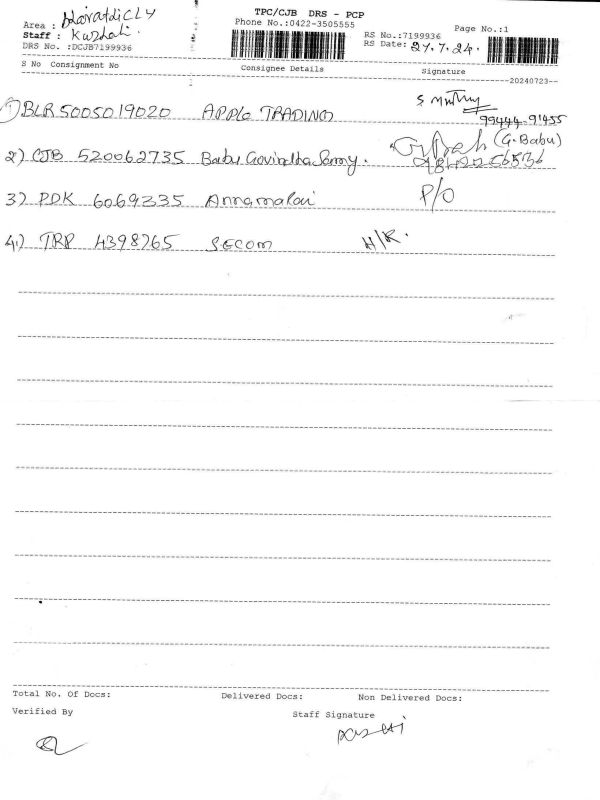 TPC/CJB DRS - PCP
Area : bharathi CLY
Phone No.:0422-3505555
Page No.:1
Staff :
RS No.:7199936
DRS No. :DCJB7199936
RS Date: 27.7.24.
S No Consignment No Consignee Details Signature
--20240723--
1) BLR 5005019020 APPlo TRADING
99444-91455
2) CJB 520062735 Babu (G. Babu)
3) PDK 6069335 Annamalai P/O
4.) TRP 4398765 SECOM H/R.
Total No. Of Docs: Delivered Docs: Non Delivered Docs:
Verified By Staff Signature